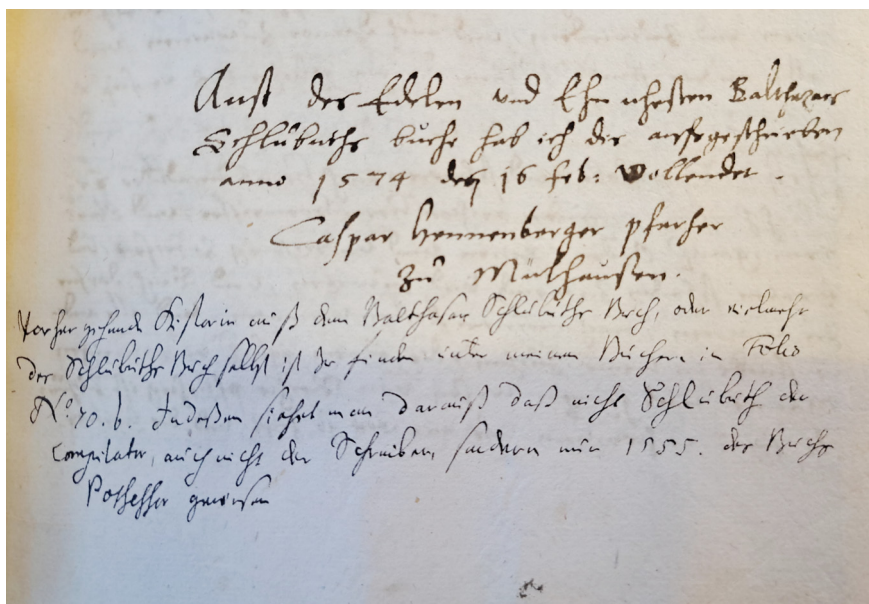 Auß des Edelen und Ehrnvhesten Balthazars
Schlubuths buche hab ich dis ausgeschrieben
anno 1574 den 16 feb: Vollendet.
Caspar Hennenberger pfarher
zu Mülhausen.
Vorhergehende Historia auß dem Balthasar Schlubuths Buch, oder vielmehr
des Schlubuths Buch selbst ist zu finden unter meinen Büchern in Folio
No. 70. b. Indeßen siehet man darauß daß nicht Schlubuth der
Compilator, auch nicht der Schreiber, sondern nur 1555. des Buchs
Possessor gewesen